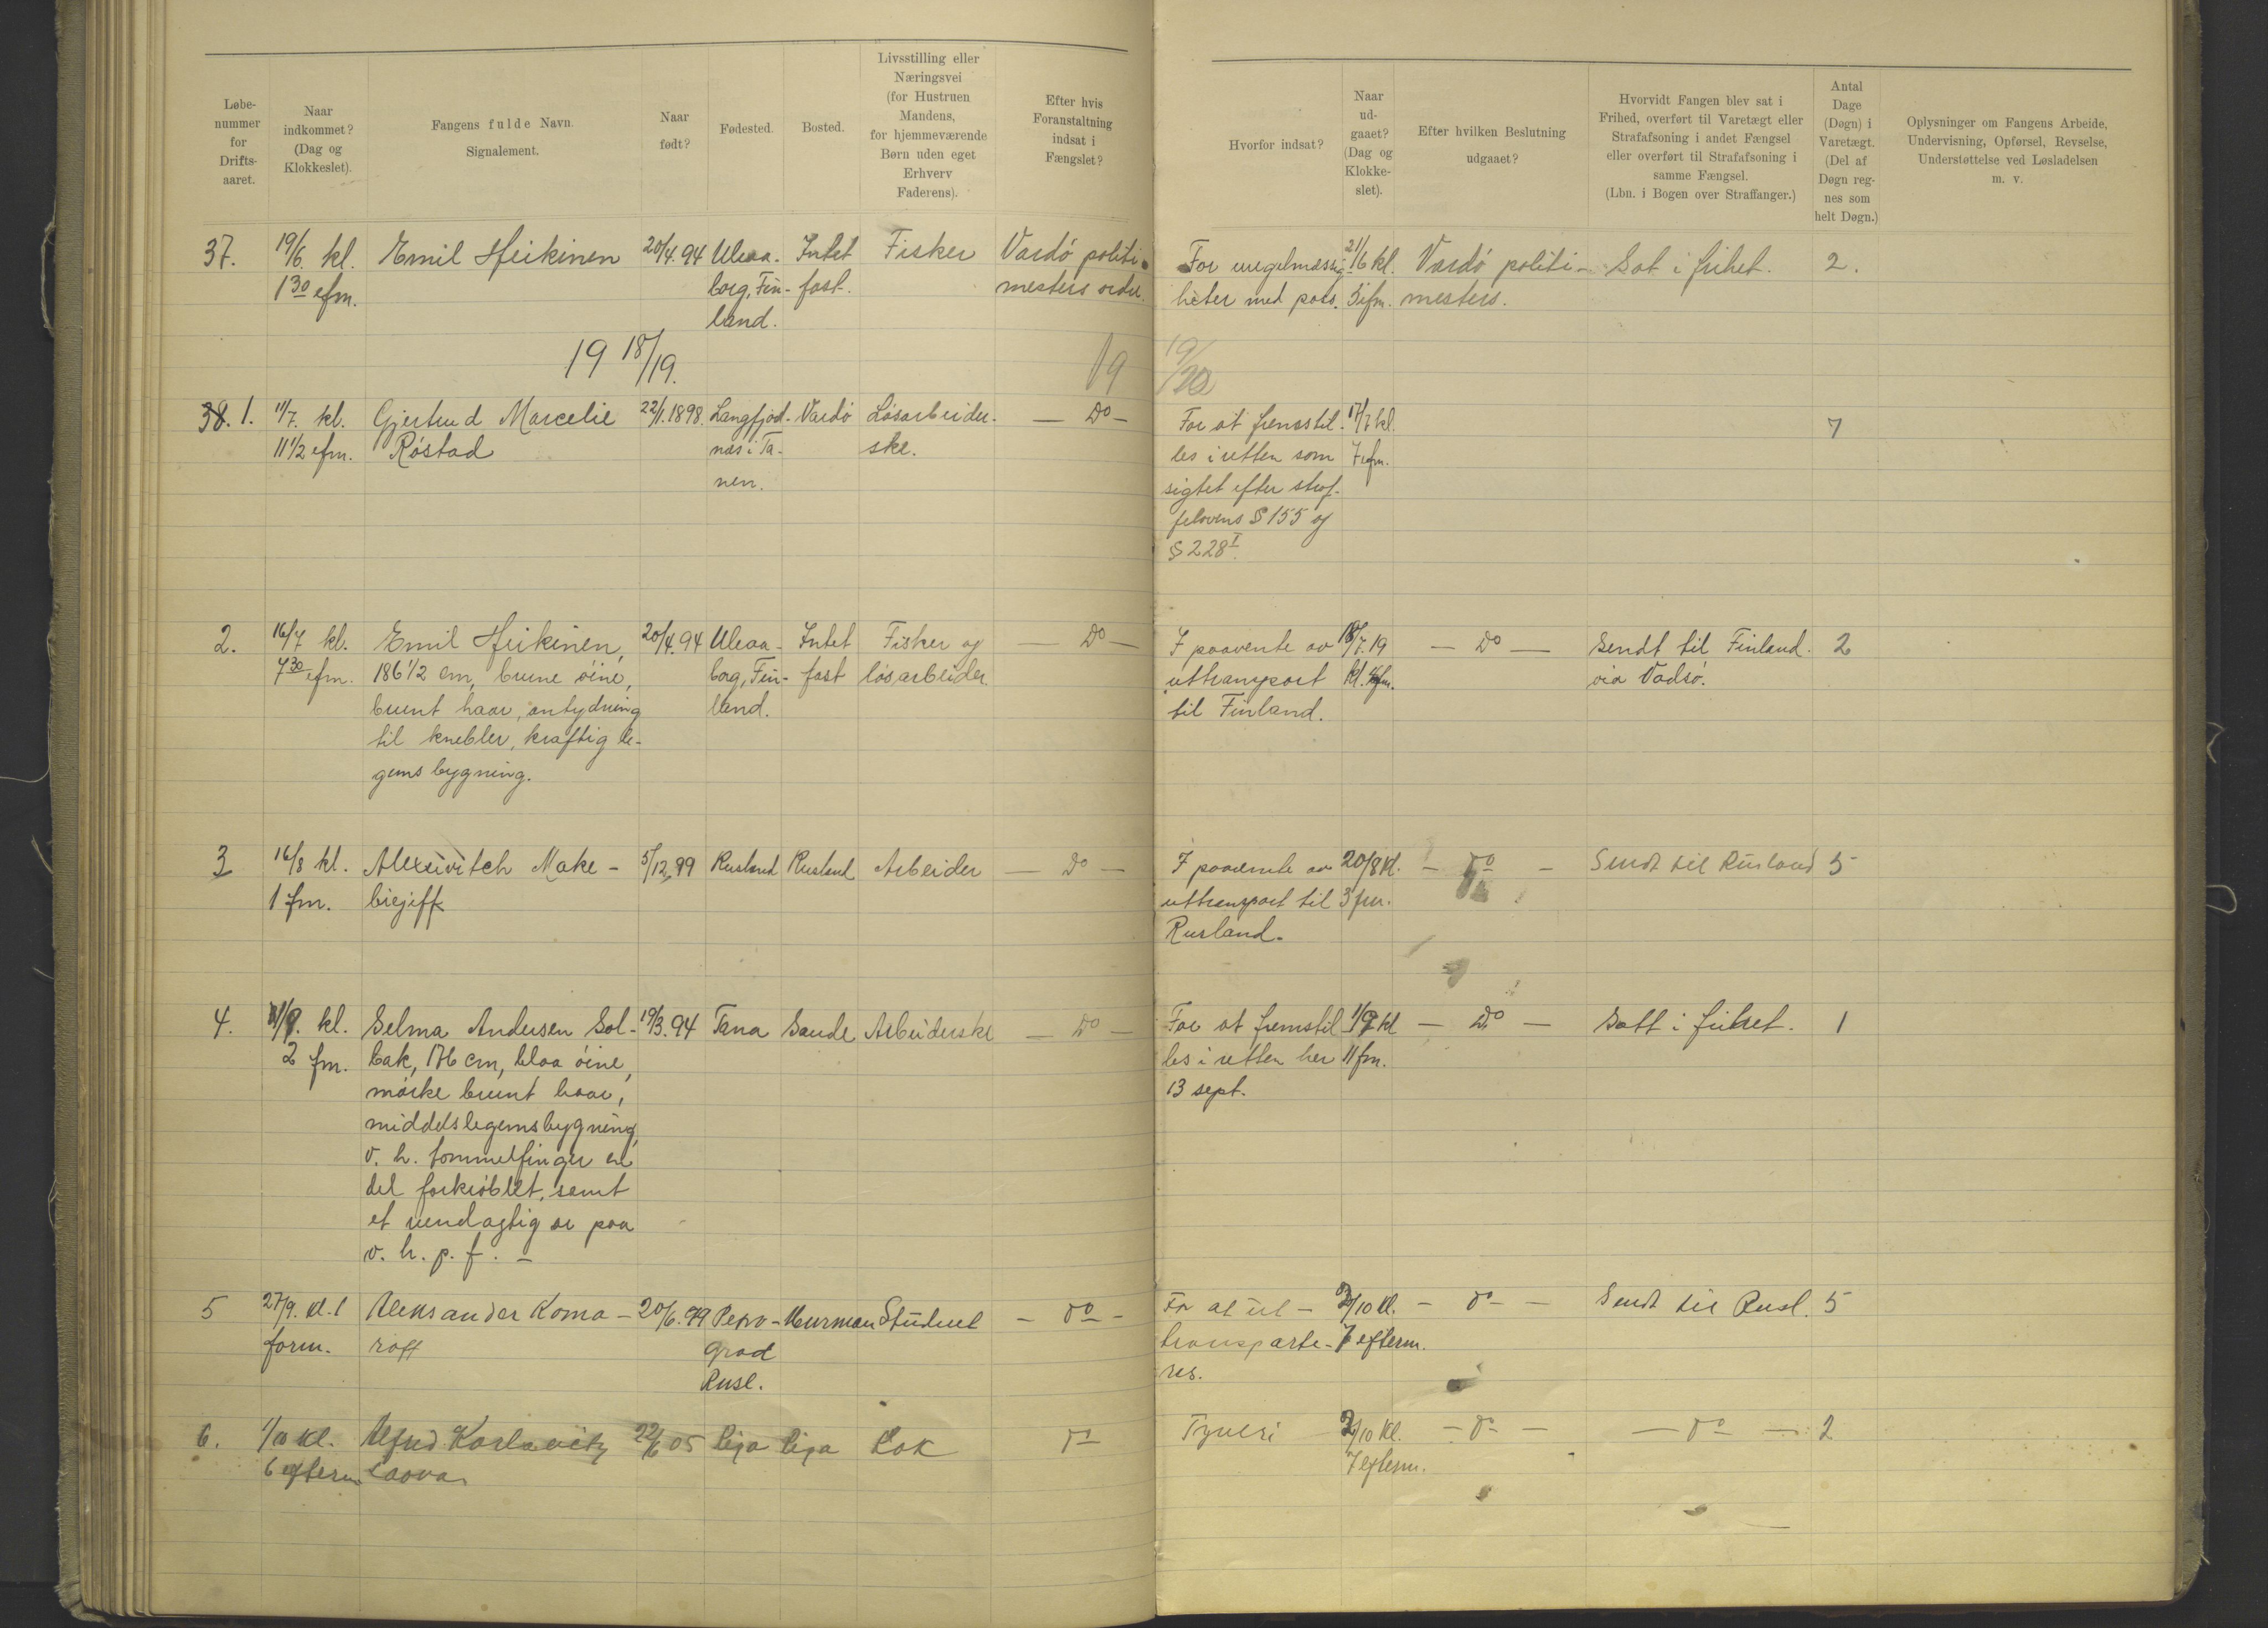 Løbe-
nummer
for
Drifts-
aaret.
Naar
indkommet?
(Dag og
Klokkeslet).
Fangens fulde Navn.
Signalement.
Naar
født?
Fødested.
Bosted.
Livsstilling eller
Næringsvei
(for Hustruen
Mandens,
for hjemmeværende
Børn uden eget
Erhverv
Faderens).
Efter hvis
Foranstaltning
indsat i
Fængslet?
Hvorfor indsat?
Naar
ud-
gaaet?
(Dag og
Klokke-
slet).
Efter hvilken Beslutning
udgaaet?
Hvorvidt Fangen blev sat i
Frihed, overført til Varetægt eller
Strafafsoning i andet Fængsel
eller overført til Strafafsoning i
samme Fængsel.
(Lbn. i Bogen over Straffanger.)
Antal
Dage
(Døgn) i
Varetægt.
(Del af
Døgn reg-
nes som
helt Døgn.)
Oplysninger om Fangens Arbeide,
Undervisning, Opførsel, Revselse,
Understøttelse ved Løsladelsen
m. v.
37. 19/6. kl. Emil Heikinen 20/4.94 Uleaa- Intet Fisker Vardö politi- For uregelmæssig- 21/6 kl. Vardö politi- Sat i frihet. 2.
1 30 efm. borg, Fin- fast. mesters ordre. heter med pass. 5 efm. mesters.
land.
19 18/19. 19 19/20
38. 1. 11/7. kl. Gjertrud Marcelie 22/1.1898. Langfjord- Vardö Lösarbeider- — Do — For at fremstil- 17/7 kl. 7
11 1/2 efm. Röstad næs i Ta- ske. les i retten som 7 efm.
nen. sigtet efter straf-
felovens § 155 og
§ 228 I.
2. 16/7 kl. Emil Heikinen, 20/4.94 Uleaa- Intet Fisker og — Do — I paavente av 18/7.19 — Do — Sendt til Finland. 2
7 30 efm. 186 1/2 cm, brune öine, borg, Fin- fast lösarbeider. uttransport kl. via Vadsö.
brunt haar, antydning land. til Finland.
til knebler, kraftig le-
gems bygning.
3 16/8 kl. Alexivitch Make- 5/12.99 Rusland Rusland Arbeider — Do — I paavente av 20/8 kl. — Do — Sendt til Rusland 5
1 fm. biejiff uttransport til 3 fm.
Rusland.
4. kl. Selma Andersen Sol- 19/3.94 Tana Sande Arbeiderske — Do — For at fremstil- kl — Do — Satt i frihet. 1
2 fm. bak, 176 cm, blaa öine, les i retten her 11 fm.
mörke brunt haar, 13 sept.
middels legemsbygning,
v. h. tommelfinger en
del forkröblet, samt
et rundagtig ar paa
v. h. p. f. —
5 27/9. kl. 1 Aleksander Koma- 20/6.99 Petro- Murman Student — Do — For at ut- 2/10 kl. — Do — Sendt til Rusl. 5
form. roff grad transporte- 7 efterm.
Rusl. res.
6. 1/10 kl. Alfred Karlovitz 22/6 05 Riga Riga Kok Do Tyveri 2/10 kl. — Do — — Do — 2
6 efterm. 7 efterm.